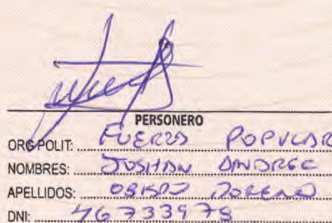 PERSONERO
ORG. POLIT: FUERZA POPULAR
NOMBRES: JOSHAN ANDREE
APELLIDOS:
DNI: 46733978